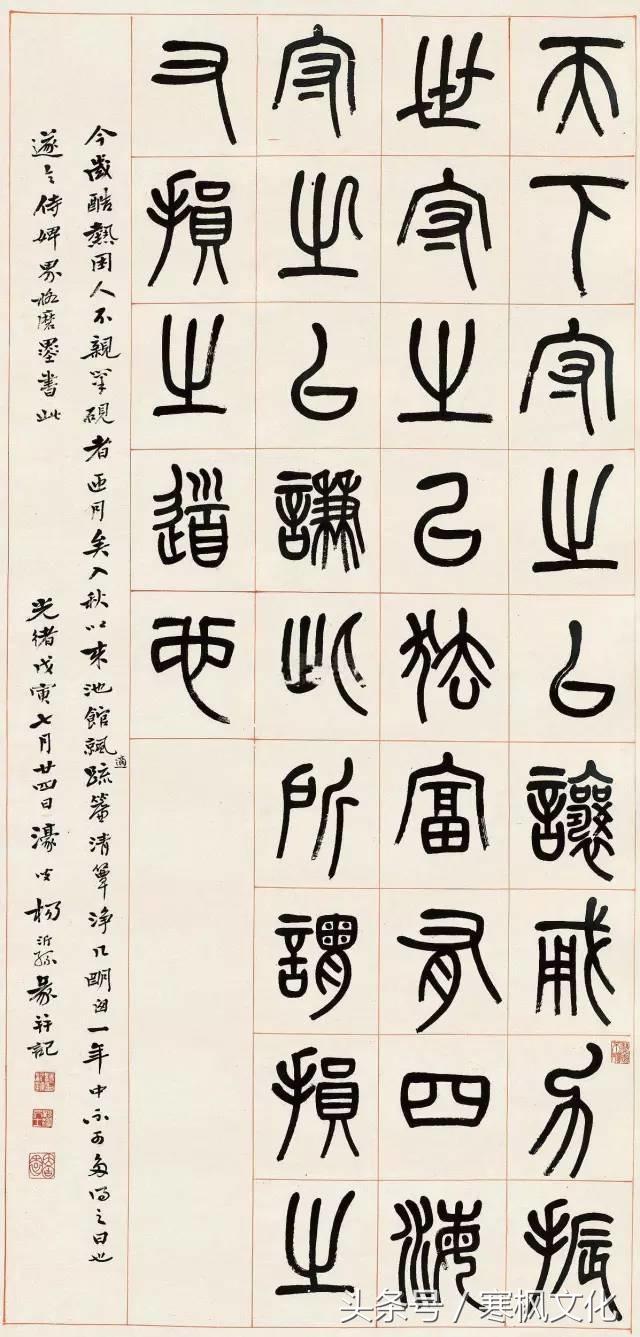 天下守之以讓勇力振
世守之以㹤富有四海
守之以謙此所謂損之
又損之道也
今歲酷熱困人不親筆硯者匝月矣入秋以來池館颯適疏簾清簟淨几明窗一年中不可多得之日也
遂令侍婢界格磨墨書此
光緒戊寅七月廿四日濠叟楊沂孫篆并記
头条号/寒枫文化